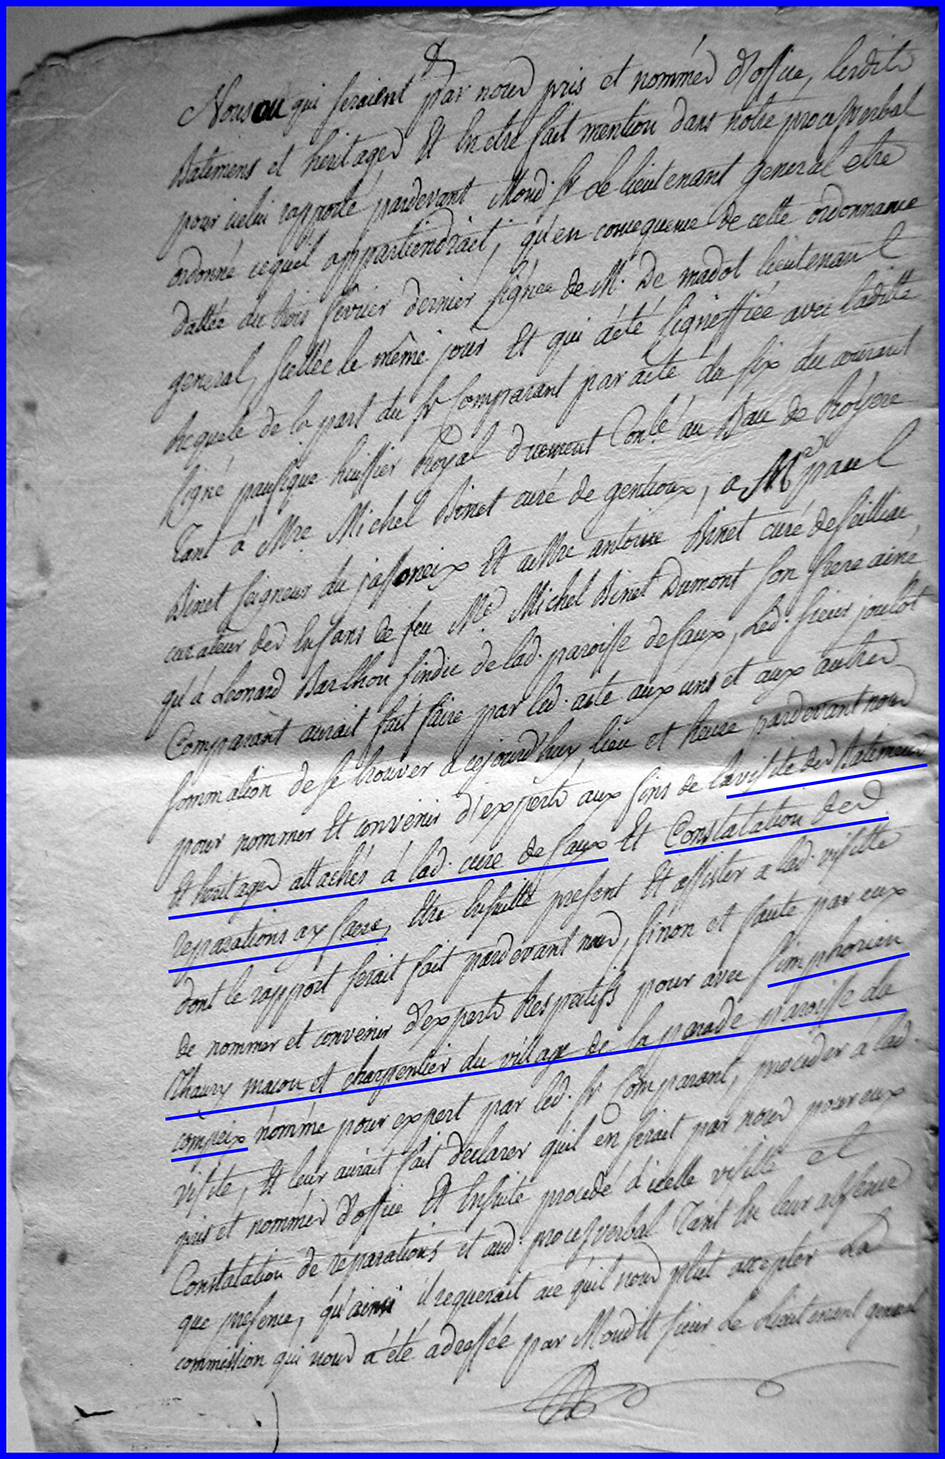 Nous ou qui seraient par nous pris et nommés d'office, lesdits
Batimens et heritages Et En etre fait mention dans notre procesverbal
pour icelui rapporté pardevant Mond. Sr Le lieutenant general etre
ordonné cequil appartiendrait, qu'en consequence de cette ordonnance
dattée du trois fevrier dernier signée de M. De madot lieutenant
general, scellée le même jour Et qui a été signiffiée avec laditte
Requete de la part du Sr Comparant par acte du six du courant
signé huissier Royal duement Conlé au Bau de Royere
Tant à Mre Michel Binet curé de gentioux, a Me paul
Binet seigneur du jassoneix Et aMre antoine Binet curé de
curateur des Enfans de feu Me Michel Binet Dumont son frere ainé
qu'à Léonard Barlhou sindic de lad. paroisse defaux, Led. sieur joulot
Comparant aurait fait faire par led. acte aux uns et aux autres
sommation de se trouver a cejourd'huy, lieu et heure pardevant nous
pour nommer Et convenir d'experts aux fins de lavisite des Batimens
Et heritages attachés à lad. cure de faux Et Constatation des
reparations ay faire, Etre Ensuitte present Et assister a lad. visitte
dont le rapport serait fait pardevant nous, sinon et faute par eux
de nommer et convenir d'experts Respectifs pour avec simphorien
Chaury macon et charpentier du village de la parade paroisse du
compeix nommé pour expert par led. Sr Comparant, proceder a lad.
visite, Et leur aurait fait declarer quil en serait par nous pour eux
pris et nommés d'office Et Ensuite procédé d'icelle visitte et
Constatation de reparations et aud. procesverbal Tant En leur absence
que presence, qu'ainsi il requerait ace quil nous plut accepter La
commission qui nous a été adressée par Moudit sieur Le Lieutenant general